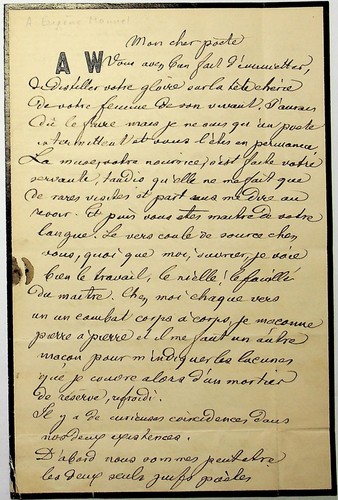 A. Eugène Manuel
Mon cher poète
A W Vous avez bien fait d'immortaliser,
de distiller votre gloire sur la tête chérie
de votre femme de son vivant. J'aurais
dû le faire mais je ne suis qu'un poète
intermittent et vous l'êtes en permanence.
La muse, votre nourrice, s'est faite votre
servante, tandis qu'elle ne me fait que
de rares visites et part sans me dire au
revoir. Et puis vous êtes maître de votre
langue. Le vers coule de source chez
vous, quoi que moi, ouvrier, je voie
bien le travail, le niellé, le fouillé
du maître. Chez moi chaque vers
un combat corps à corps, je maçonne
pierre à pierre et il me faut un autre
maçon pour m'indiquer les lacunes
que je couvre alors d'un mortier
de réserve, refroidi.
Il y a de curieuses coïncidences dans
nos deux existences.
D'abord nous sommes peut-être
les deux seuls juifs poètes